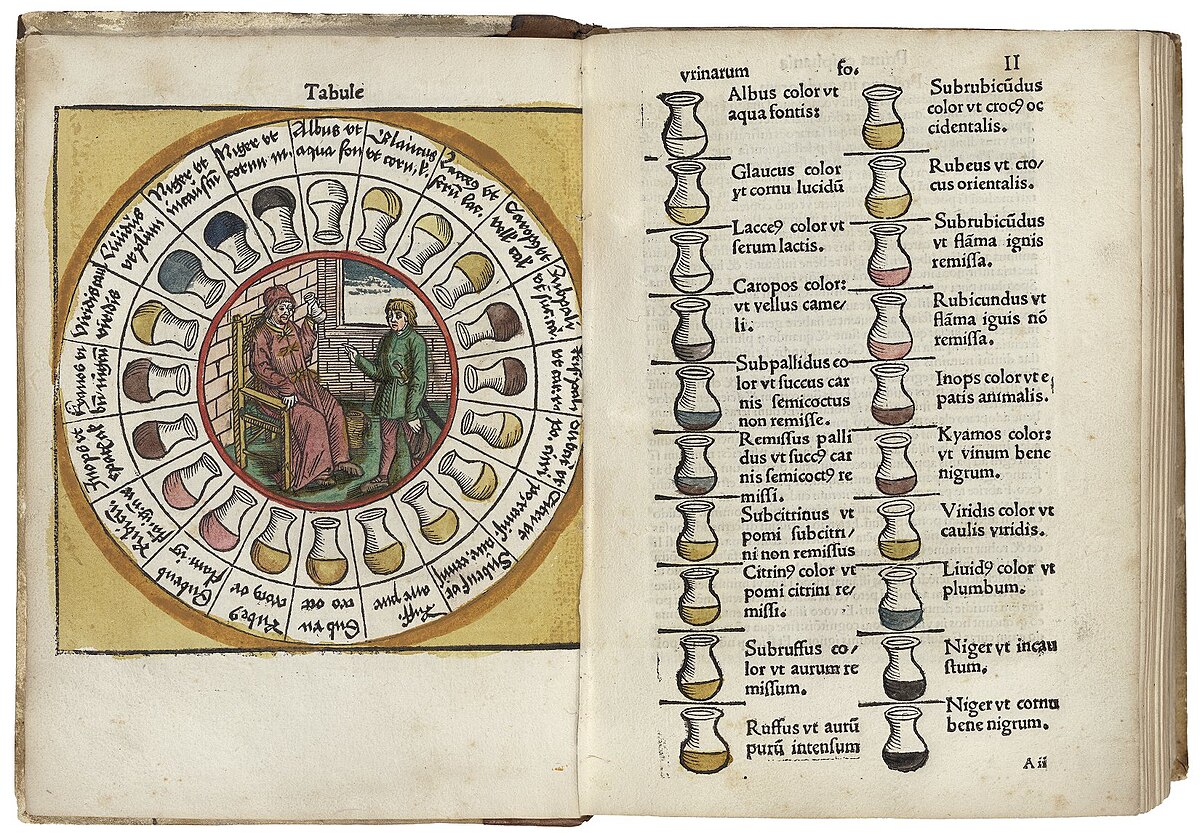 Tabule
Albus vt
aqua fon
Glaucus
vt corn. l.
Lacce9 vt
serū lac.
Rube9
Sub ru
Inops vt
Liuidus
vt plum
Niger vt
incaustū
Niger vt
cornu
vrinarum fo. II
Albus color vt
aqua fontis:
Glaucus color
vt cornu lucidū
Lacce9 color vt
serum lactis.
Caropos color:
vt vellus came/
li.
Subpallidus co-
lor vt succus car
nis semicoctus
non remisse.
Remissus palli
dus vt succ9 car
nis semicoct9 re
missi.
Subcitrinus vt
pomi subcitri/
ni non remissus
Citrin9 color vt
pomi citrini re/
missi.
Subruffus co/
lor vt aurum re
missum.
Ruffus vt aurū
purū intensum
Subrubicūdus
color vt croc9 oc
cidentalis.
Rubeus vt cro/
cus orientalis.
Subrubicūdus
vt flāma ignis
remissa.
Rubicundus vt
flāma iguis nō
remissa.
Inops color vt e
patis animalis.
Kyamos color:
vt vinum bene
nigrum.
Viridis color vt
caulis viridis.
Liuid9 color vt
plumbum.
Niger vt incau
stum.
Niger vt cornu
bene nigrum.
A ii